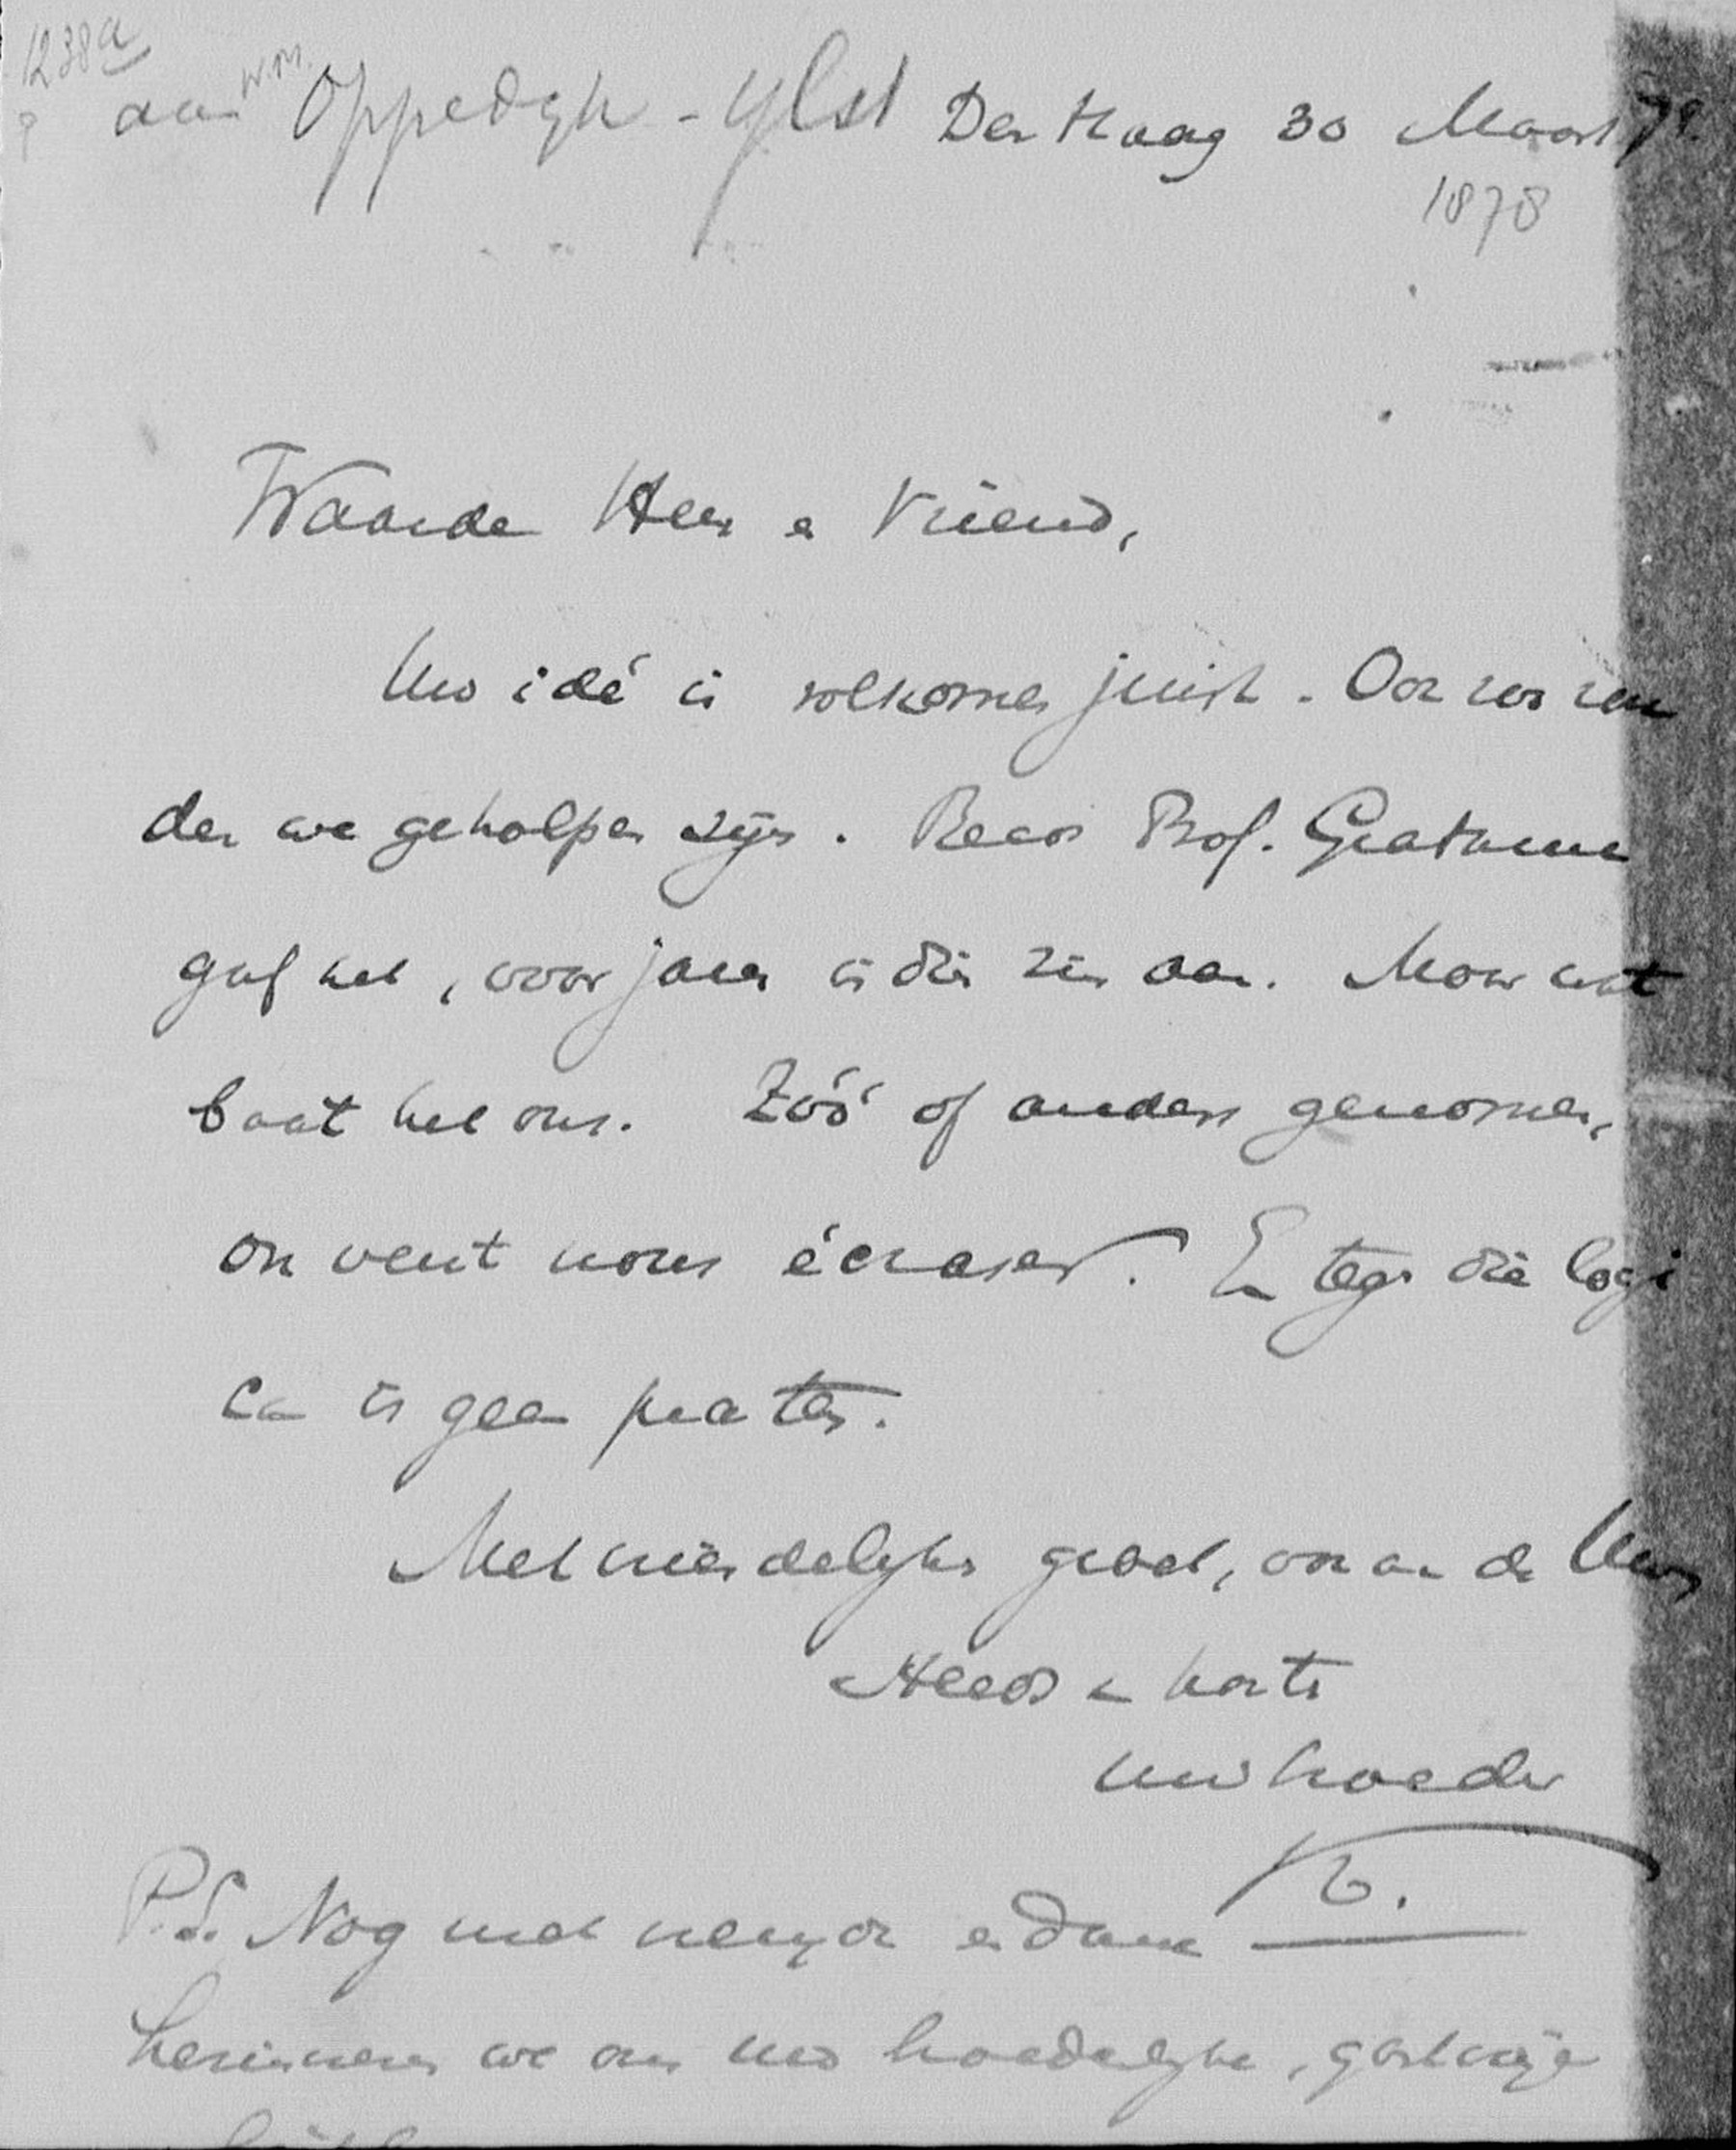 1238a
aan W.M. Oppedyk - Ylst Den Haag 30 Maart 78.
1878
Waarde Heer en Vriend,
Uw idé is volkomen juist. Ook zoo zou
den we geholpen zijn. Reeds Prof. Gratama
gaf het, voor jaren in dien zin aan. Maar wat
baat het ons. Zóó of anders genomen,
on veut nous écraser. En tegen die logi
ca is geen praten.
Met vriendelijken groet, ook aan de Uwen
Hoofd en harte
uw broeder
K.
P.S. Nog met en dank
herinneren we ons uw broederlyke, gastvrije